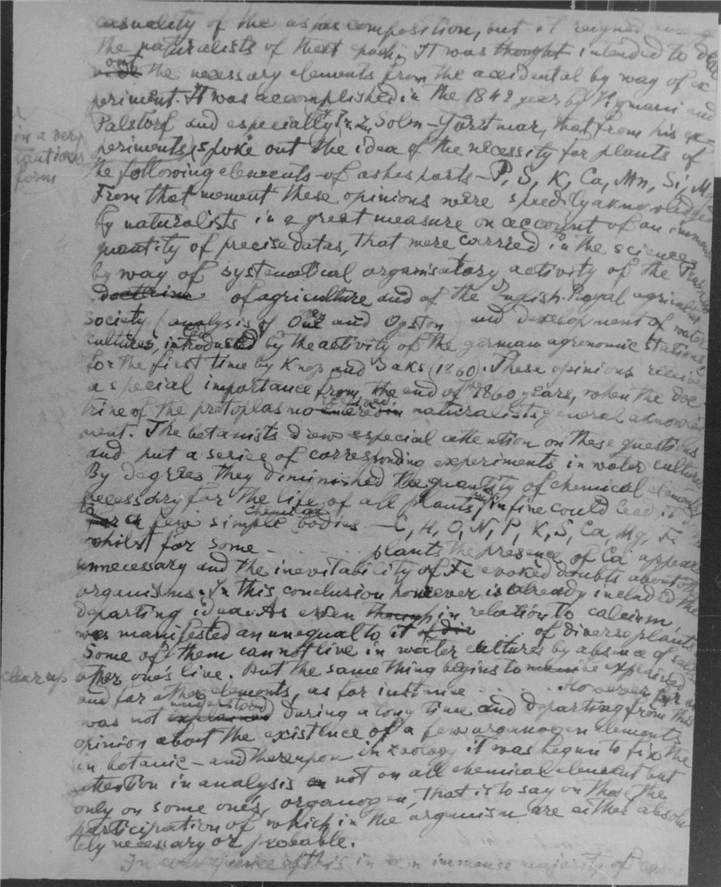 casuality of the ashes composition, but it reigned among
the naturalists of that epoch. It was thought intended to
out the necessary elements from the accidental by way of ex
periment. It was accomplished in the 1842 year by Vigmann and
Palstorf and especially Solm-Gorstmar, that from his ex
in a very
cautious
form
periments, spoke out the idea of the necessity for plants of
the following elements of ashes parts – P, S, K, Ca, Mn, Si, M
From that moment these opinions were speedily acknowledged
by naturalists in a great measure on account of an immense
quantity of precise datas, that were carried in the science
by way of systematical organisatory activity of the
doctrine of agriculture and of the English Royal agricultu
society (analysis of and Ogston) and development of water
cultures, introduced by the activity of the german agronomic stations
for the first time by Knop and Saks (1860). These opinions receive
a special importance from the end of the 1860 years, when the doc
trine of the protoplasm naturalists general acknow
ment. The botanists drew especial attention on these questions
and put a serie of corresponding experiments in water cultures
By degrees they diminished the quantity of chemical elements
necessary for the life of all plants, in fine could lead it
to a few simple chemical bodies – C, H, O, N, P, K, S, Ca, Mg, Fe
whilst for some . . . . . . plants the presence of Ca appears
unnecessary and the inevitability of Fe evoked doubts about
organisms. In this conclusion however is already included the
departing idea. As even though in relation to calcium,
was manifested an unequal to it of diverse plants
Some of them cannot live in water cultures by absence of
clear up
other one's live. But the same thing begins to
and for other elements, as for instance . . . . However, for
was not understood explained during a long time and departing from this
opinion about the existence of a few organogen elements
in botanic – and thereupon in zoology it was begun to fix the
attention in analysis on not on all chemical element but
only on some ones, organogen, that is to say on those the
participation of which in the organism are either absolu
tely necessary or probable.
In consequence of this in an immense majority of cases